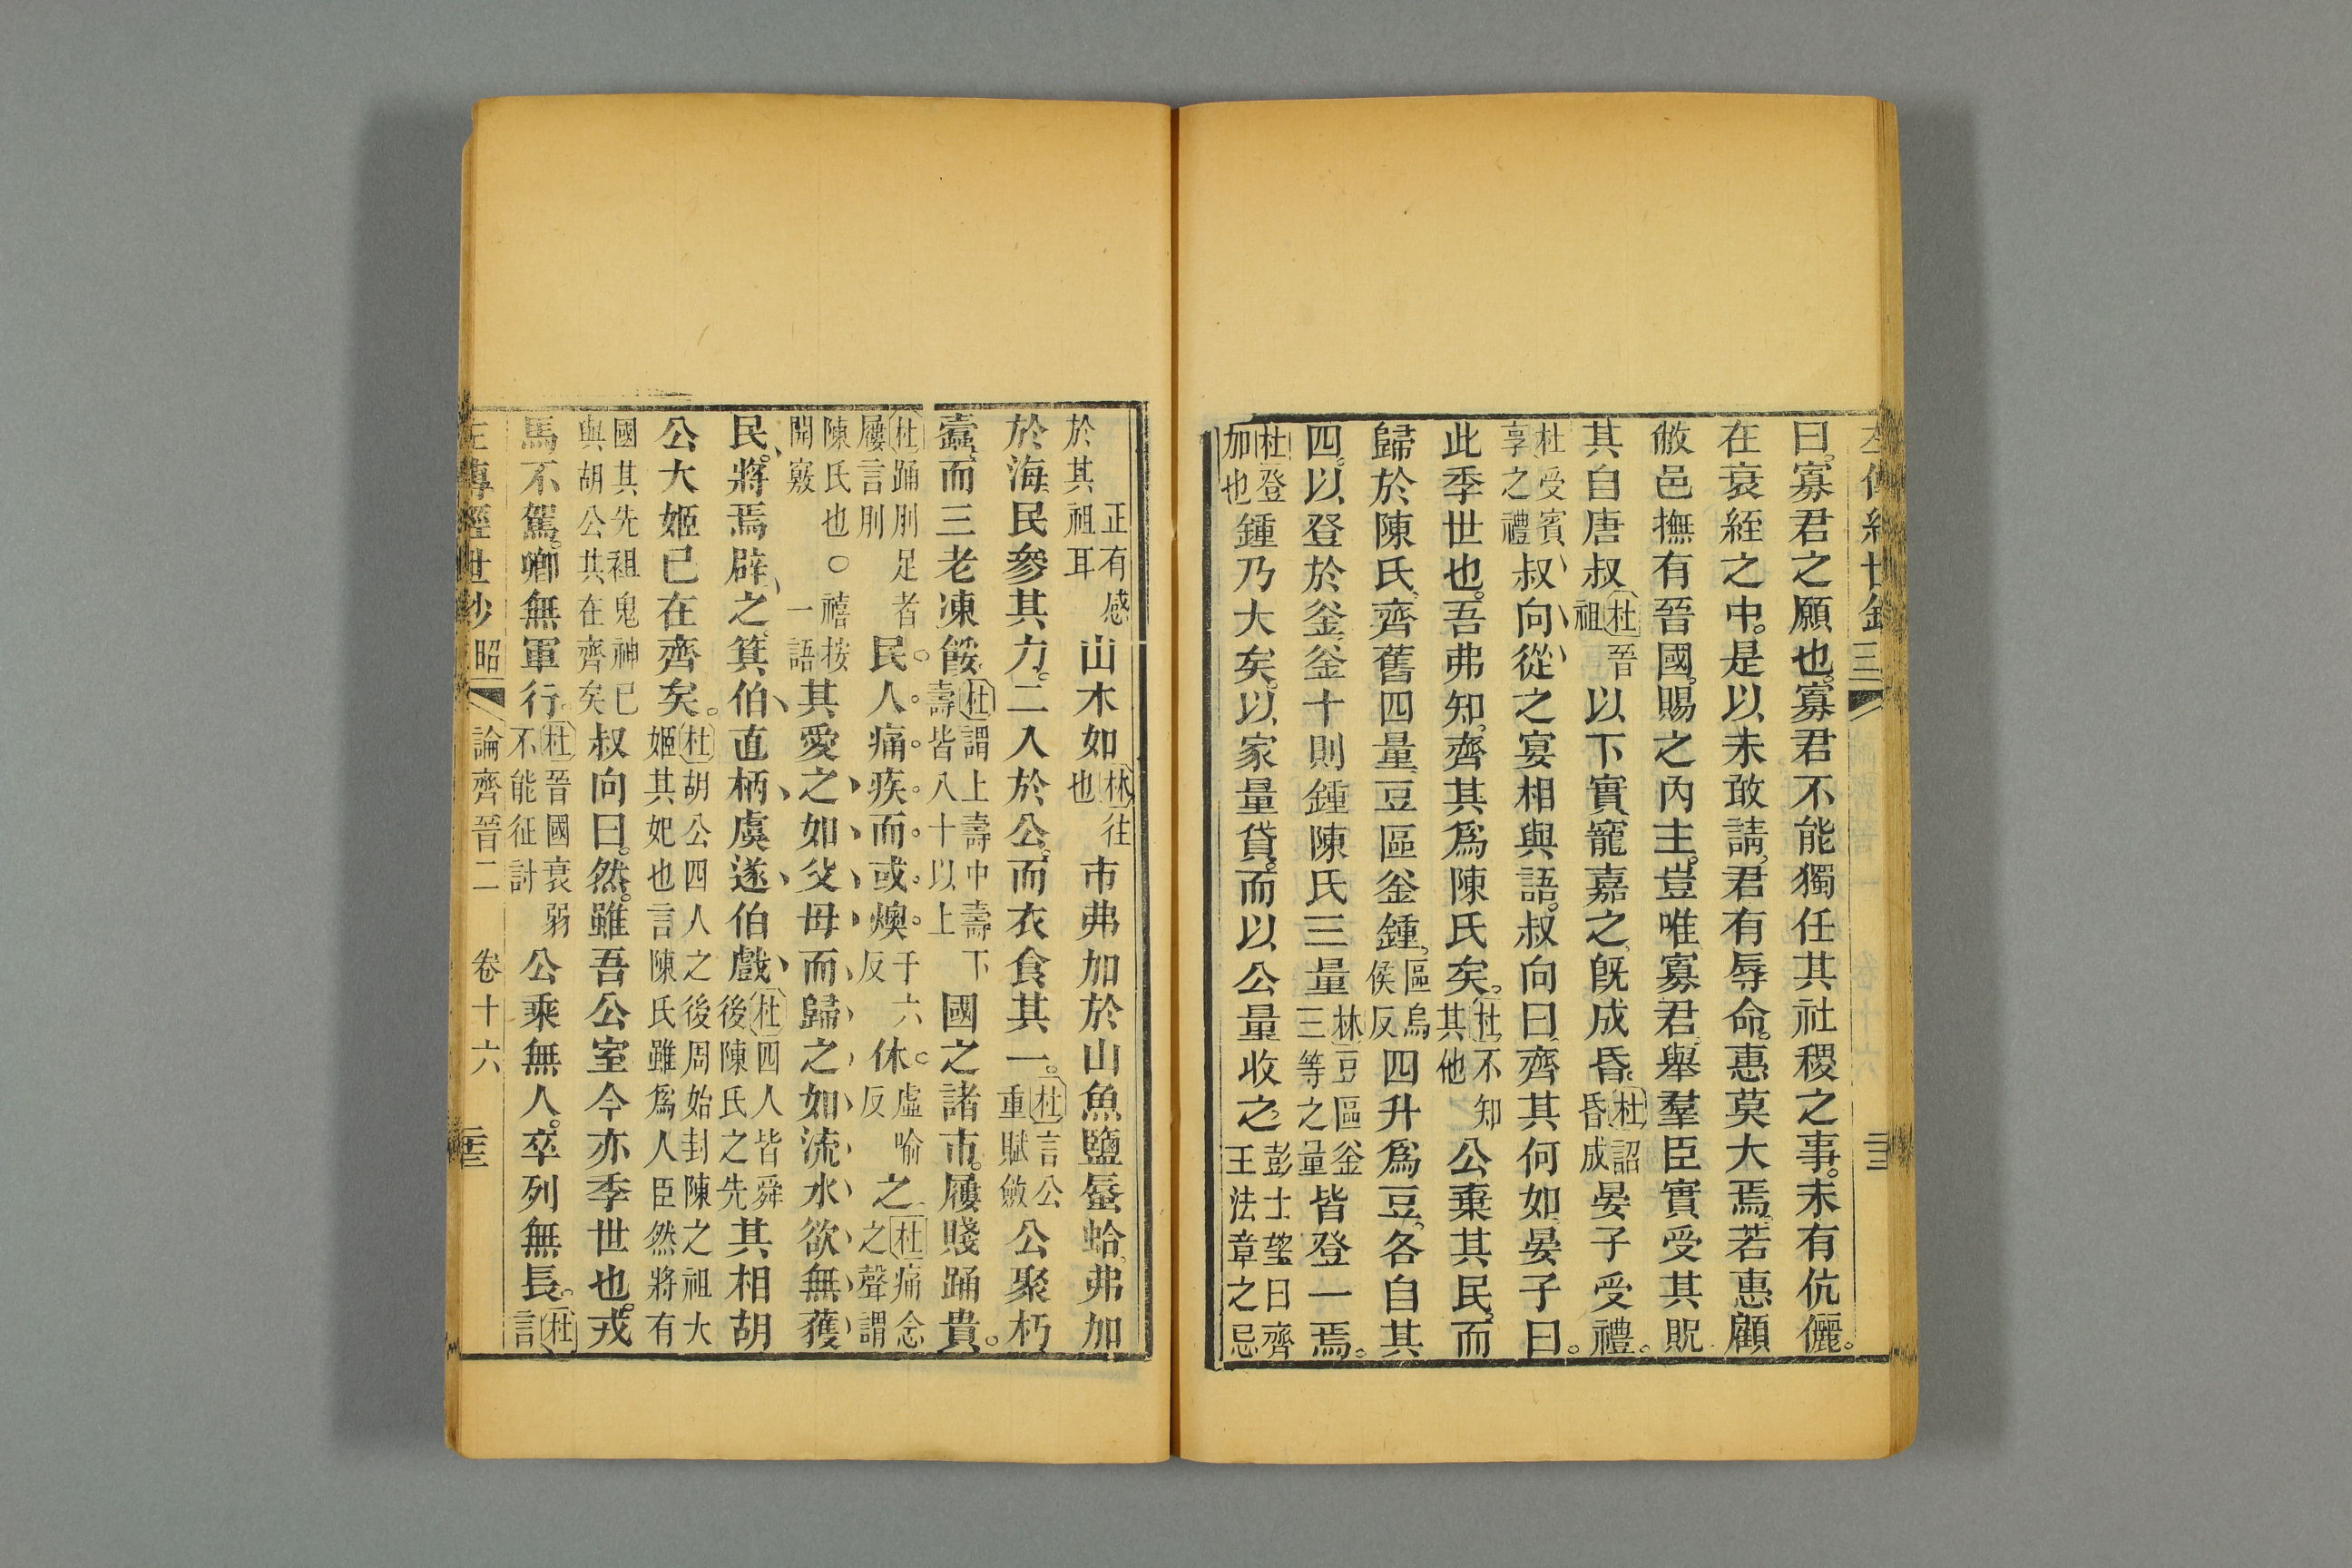 曰寡君之願也寡君不能獨任其社稷之事未有伉儷
在衰絰之中是以未敢請君有辱命惠莫大焉若惠顧
敝邑撫有晉國賜之內主豈唯寡君舉羣臣實受其貺
其自唐叔杜晉祖以下實寵嘉之旣成昏杜詔昏成晏子受禮
杜受賓享之禮叔向從之宴相與語叔向曰齊其何如晏子曰
此季世也吾弗知齊其爲陳氏矣杜不知其他公棄其民而
歸於陳氏齊舊四量豆區釜鍾區烏侯反四升爲豆各自其
四以登於釜釜十則鍾陳氏三量林豆區釜三等之量皆登一焉
杜登加也鍾乃大矣以家量貸而以公量收之彭士望曰齊王法章之忌
正有感於其祖耳山木如林往也市弗加於山魚鹽蜃蛤弗加
於海民參其力二入於公而衣食其一杜言公重賦斂公聚朽
蠹而三老凍餒杜謂上壽中壽下壽皆八十以上國之諸市屨賤踊貴
杜踊刖足者屨言刖民人痛疾而或燠于六反休虛喻反之杜痛念之聲謂
陳氏也○禧按一語開竅其愛之如父母而歸之如流水欲無獲
民將焉辟之箕伯直柄虞遂伯戲杜四人皆舜後陳氏之先其相胡
公大姬已在齊矣杜胡公四人之後周始封陳之祖大姬其妃也言陳氏雖爲人臣然將有
國其先祖鬼神已與胡公共在齊矣叔向曰然雖吾公室今亦季世也戎
馬不駕卿無軍行杜晉國衰弱不能征討公乘無人卒列無長杜言
左傳經世鈔 昭 論齊晉二 卷十六